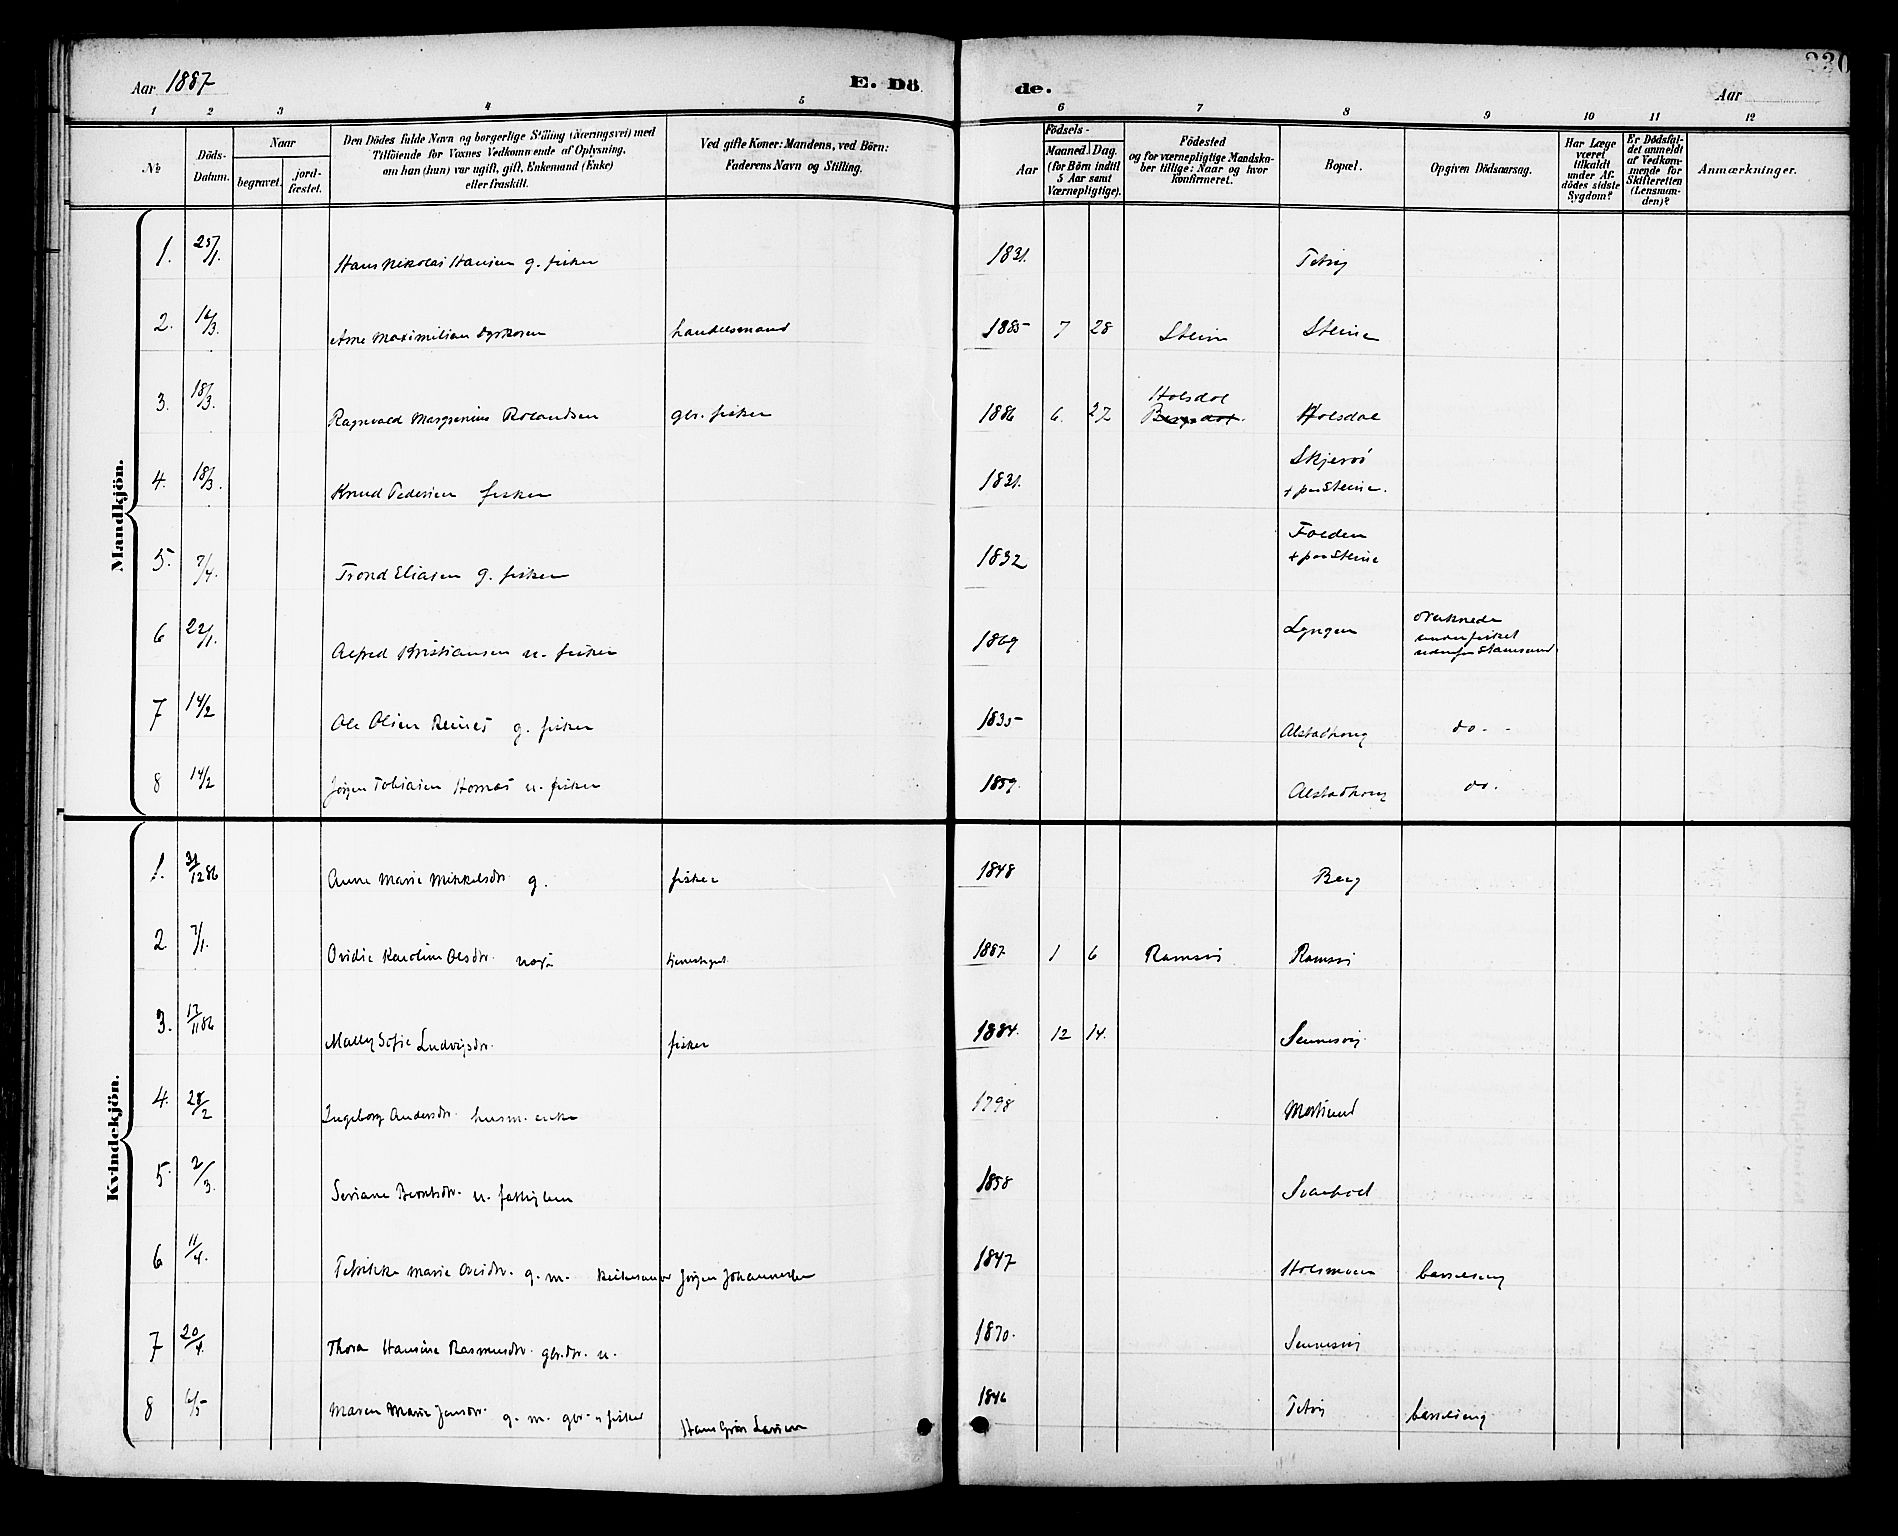 Aar 1887
E. Dö
de.
220
Aar
1 2 3 4 5 6 7 8 9 10 11 12
№
Döds-
Datum.
Naar
begravet.
jord-
fæstet.
Den Dödes fulde Navn og borgerlige Stilling (Næringsvei) med
Tilföiende for Voxnes Vedkommende af Oplysning,
om han (hun) var ugift, gift, Enkemand (Enke)
eller fraskilt.
Ved gifte Koner: Mandens, ved Börn:
Faderens Navn og Stilling.
Födsels-
Aar
Maaned. Dag.
(for Börn indtil
5 Aar samt
Værnepligtige).
Födested
og for værnepligtige Mandska-
ber tillige: Naar og hvor
konfirmeret.
Bopæl.
Opgiven Dödsaarsag.
Har Læge
været
tilkaldt
under Af-
dödes sidste
Sygdom?
Er Dödsfal-
det anmeldt
af Vedkom-
mende for
Skifteretten
(Lensman-
den)?
Anmærkninger.
Mandkjön.
1. 25/1. Hans Nikolai Hansen g. fisker 1831. Petvig
2. 12/3. Arne Maximilian Dyrkoren handelsmand 1885 7 28 Stein Steine
3. 18/3. Ragnvald Margrenius Rolandsen gbr. fisker 1886 6. 27 Holsdal
Bergsdal. Holsdal
4. 18/3. Knud Pedersen fisker 1831. Skjervö
+ paa Steine.
5. 7/4. Trond Eliasen g. fisker 1832 Folden
+ paa Steine
6 22/1. Alfred Kristiansen u. fisker 1869 Lyngen druknede
under fisket
udenfor Stamsund
7 14/2 Ole Olsen Reines g. fisker 1835 Alstadhoug do.
8 14/2 Jörgen Tobiasen Homes u. fisker 1859. Alstadhoug do.
Kvindekjön.
1. 31/12 86 Anne Marie Mikkelsdtr. g. fisker 1848 Berg
2 7/1. Ovidie Karoline Olsdtr. uægte tjenestegut 1887 1 6 Ramsvi Ramsvi
3. 17/11 86 Mally Sofie Ludvigsdtr. fisker 1884. 12 14. Sennesvig
4. 28/2 Ingeborg Andersdtr. husm. enke 1798 Mortsund
5. 2/3. Seriane Berntsdtr. u. fattiglem 1858 Svarholt
6 11/4. Petrikke Marie Olsdtr. g. m. Kirkesanger Jörgen Johannessen 1847 Holsmoen barselseng
7 20/4. Thora Hansine Rasmusdtr. gbr.dtr. u. 1870. Sennesvig
8 6/5 Maren Marie Jensdtr. g. m. gbr. u fisker Hans Griis Larsen 1846 Petvig barselseng